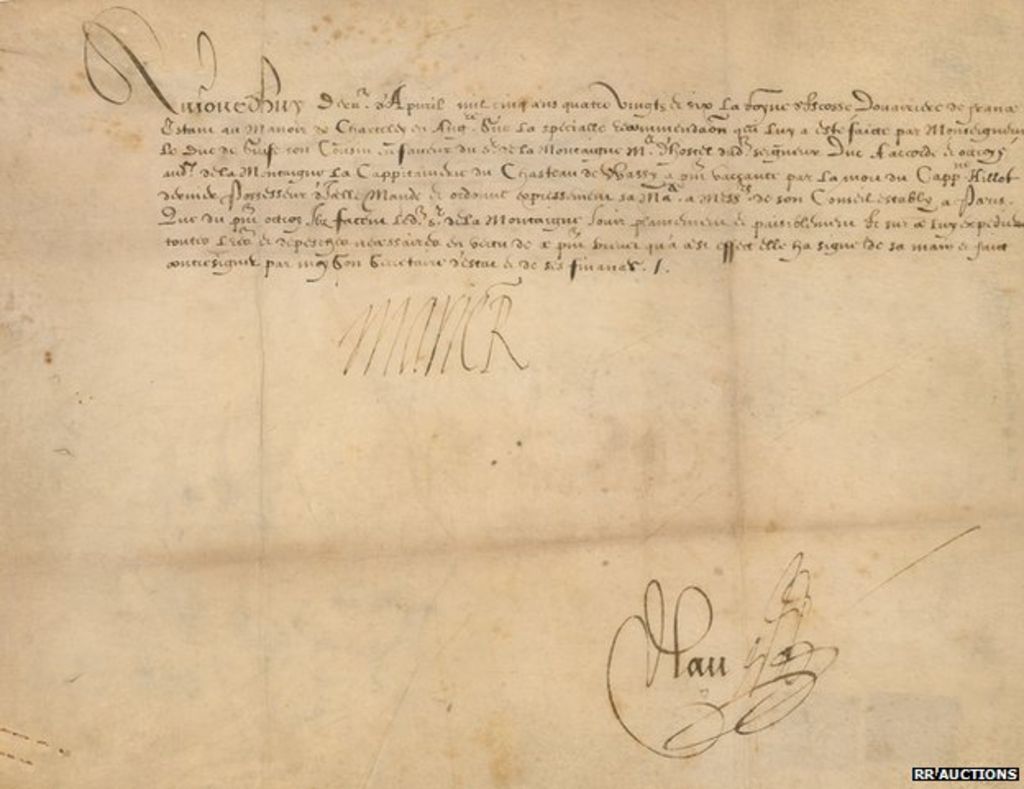 Aujourdhuy d'Apvril mil cinq cens quatre vingtz & six La Royne d'Escosse Douairiere de france
Estant au Manoir de Charteley en Sur La specialle recommendaon qui Luy a esté faicte par Monseigneur
Le Duc de Guise son Cousin en faveur du de la Montaigne Me d'Hostel seigneur Duc A accordé & octroyé
de la Montaigne La Cappitainerie du Chasteau de Wassy a pnt vaccante par La mort du Cappne Hillot
dernier Possesseur d'Icelle Mande & ordonne expressement sa Mate a Messrs de son Conseil estably a Paris.
Que du pnt octroy facent de la Montaigne Jouir plainement & paisiblement & sur ce Luy expedient
toutes & depesches necessaires en vertu de ce pnt brevet qu'a cest effect elle ha signé de sa main & faict
contresigner par moy Son Secretaire d'estat & de ses finances. /.
MARIE R
Nau
RR AUCTIONS